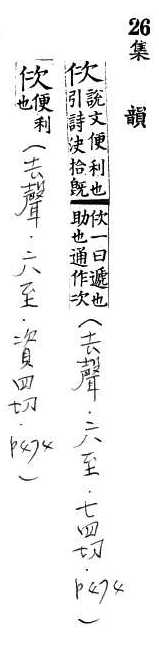 26
集韻
佽說文便利也引詩決拾旣佽一曰遞也助也通作次(去聲.六至.七四切.p474)
佽便利也(去聲.六至.資四切.p474)